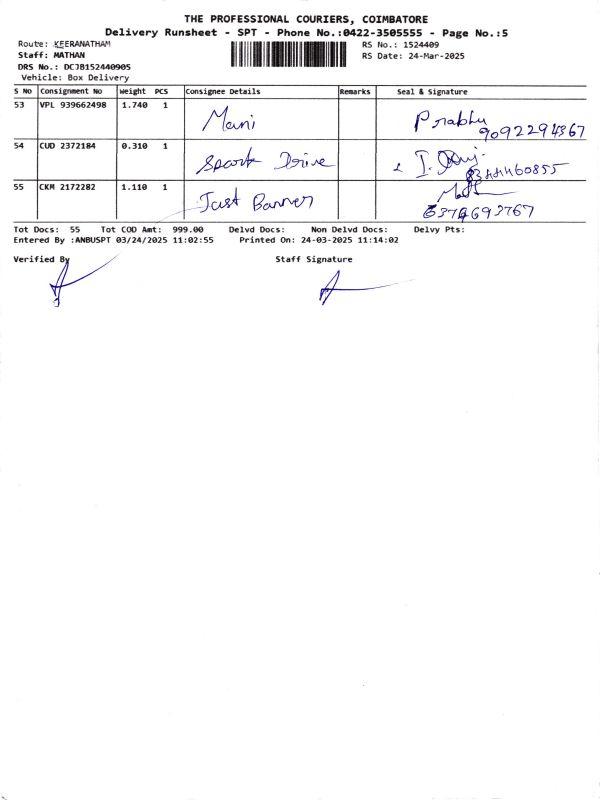 THE PROFESSIONAL COURIERS, COIMBATORE
Delivery Runsheet - SPT - Phone No.:0422-3505555 - Page No.:5
Route: KEERANATHAM
RS No.: 1524409
Staff: MATHAN
RS Date: 24-Mar-2025
DRS No.: DCJB152440905
Vehicle: Box Delivery
S No Consignment No Weight PCS Consignee Details Remarks Seal & Signature
53 VPL 939662498 1.740 1 Mani Prabhu
9092294367
54 CUD 2372184 0.310 1 Spark Drive
55 CKM 2172282 1.110 1 Just Banner
6374693767
Tot Docs: 55 Tot COD Amt: 999.00 Delvd Docs: Non Delvd Docs: Delvy Pts:
Entered By :ANBUSPT 03/24/2025 11:02:55 Printed On: 24-03-2025 11:14:02
Verified By Staff Signature